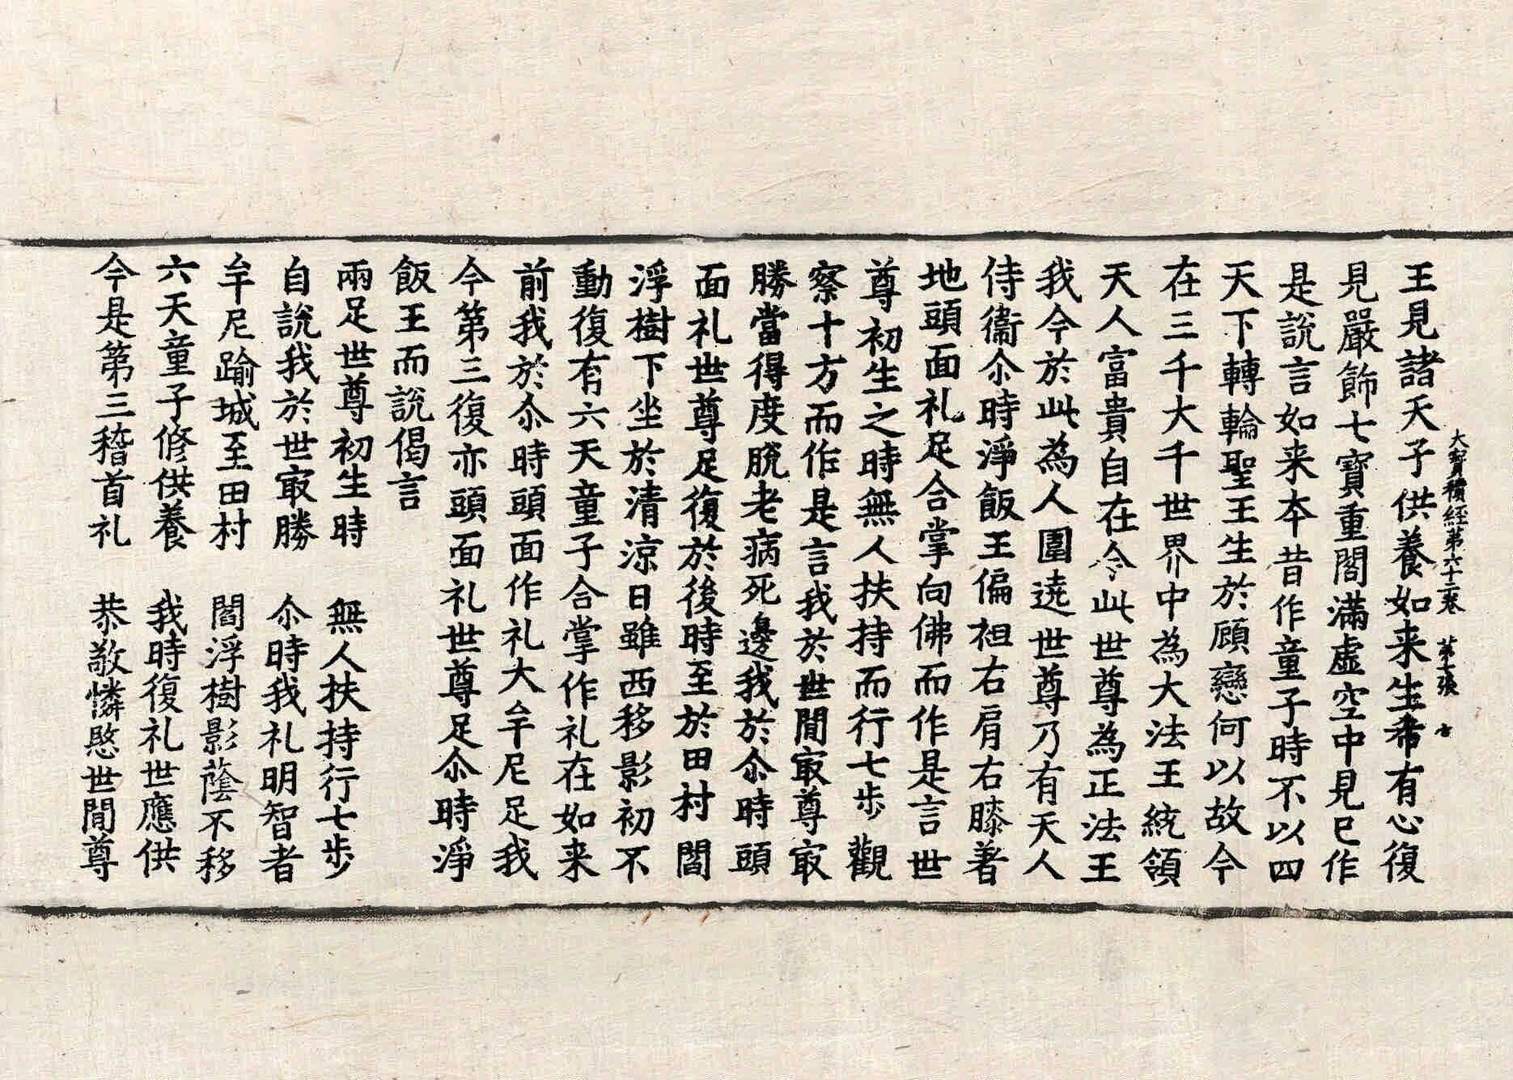 大寳積經第六十二卷 第七張 古
王見諸天子供養如来生希有心復
見嚴飾七寶重閣滿虛空中見已作
是說言如来本昔作童子時不以四
天下轉輪聖王生於顧戀何以故今
在三千大千世界中為大法王統領
天人富貴自在今此世尊為正法王
我今於此為人圍遶世尊乃有天人
侍衞尒時淨飯王偏袒右肩右膝著
地頭面礼足合掌向佛而作是言世
尊初生之時無人扶持而行七步觀
察十方而作是言我於世間㝡尊㝡
勝當得度脫老病死邊我於尒時頭
面礼世尊足復於後時至於田村閻
浮樹下坐於清涼日雖西移影初不
動復有六天童子合掌作礼在如来
前我於尒時頭面作礼大牟尼足我
今第三復亦頭面礼世尊足尒時淨
飯王而說偈言
兩足世尊初生時　無人扶持行七步
自說我於世㝡勝　尒時我礼明智者
牟尼踰城至田村　閻浮樹影蔭不移
六天童子修供養　我時復礼世應供
今是第三稽首礼　恭敬憐愍世間尊